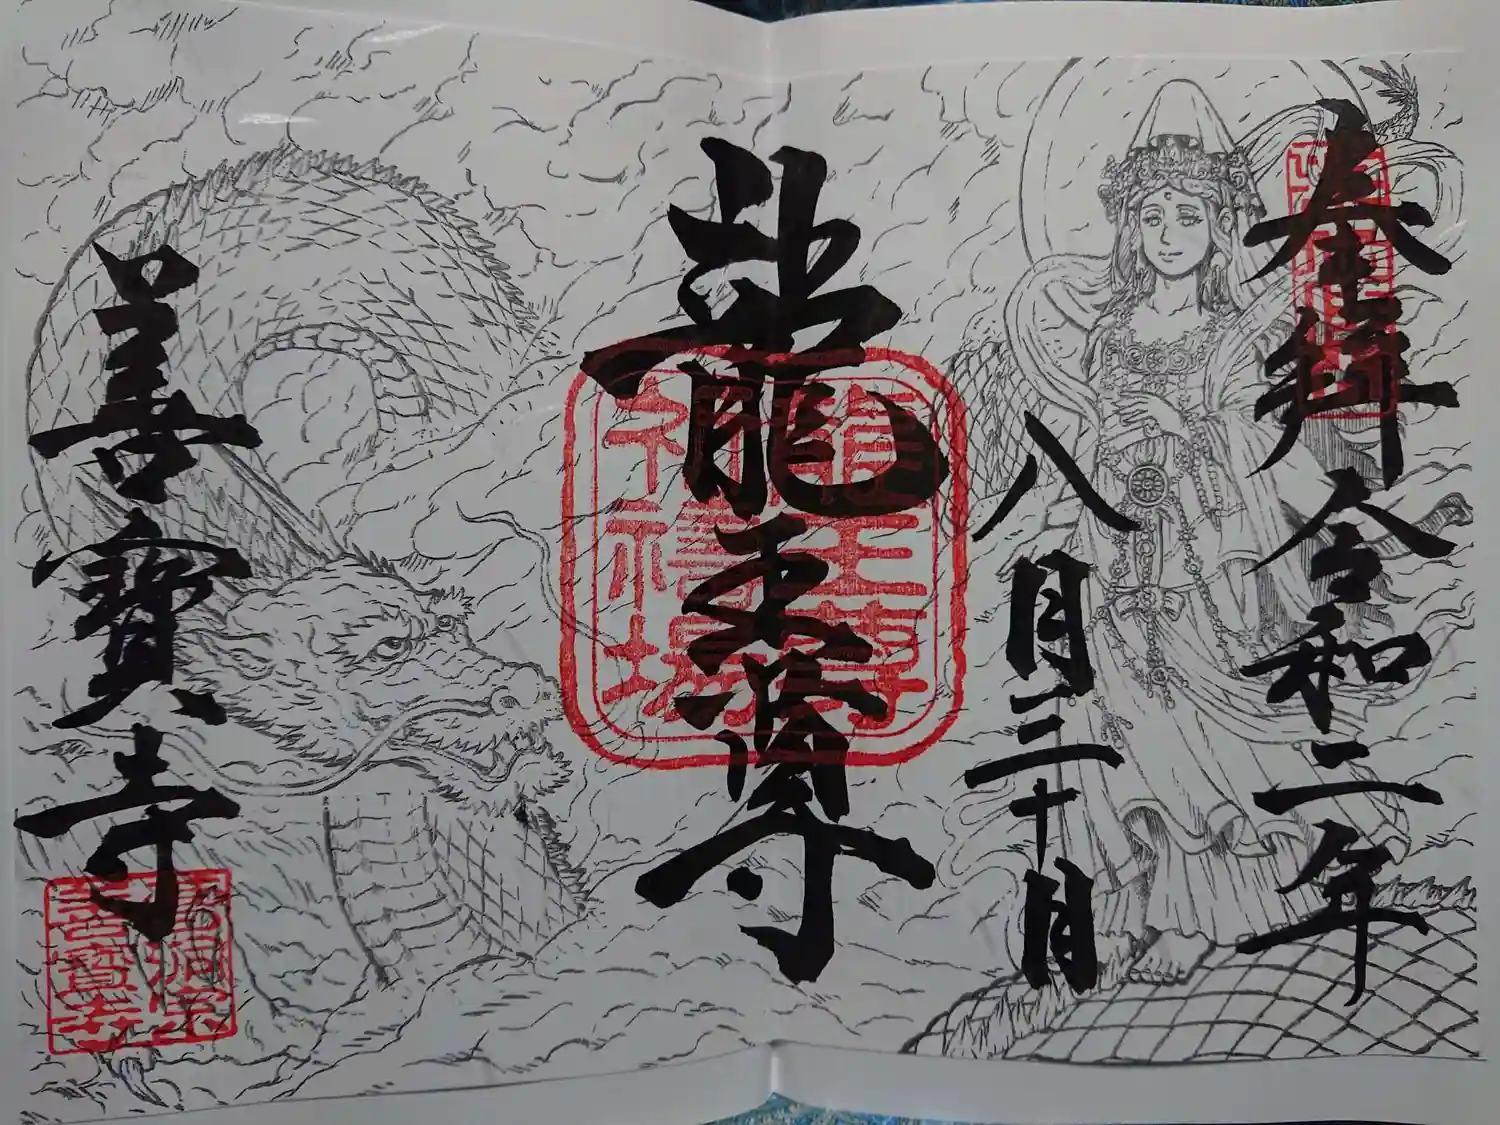 奉拝 令和二年
八月三十日
龍王尊
善寳寺
龍王尊
祈禱場
曹洞宗
善寳寺